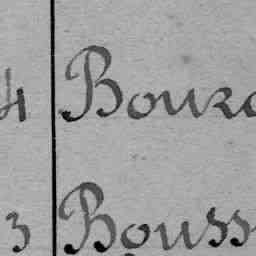 4 Bourd
3 Bouss